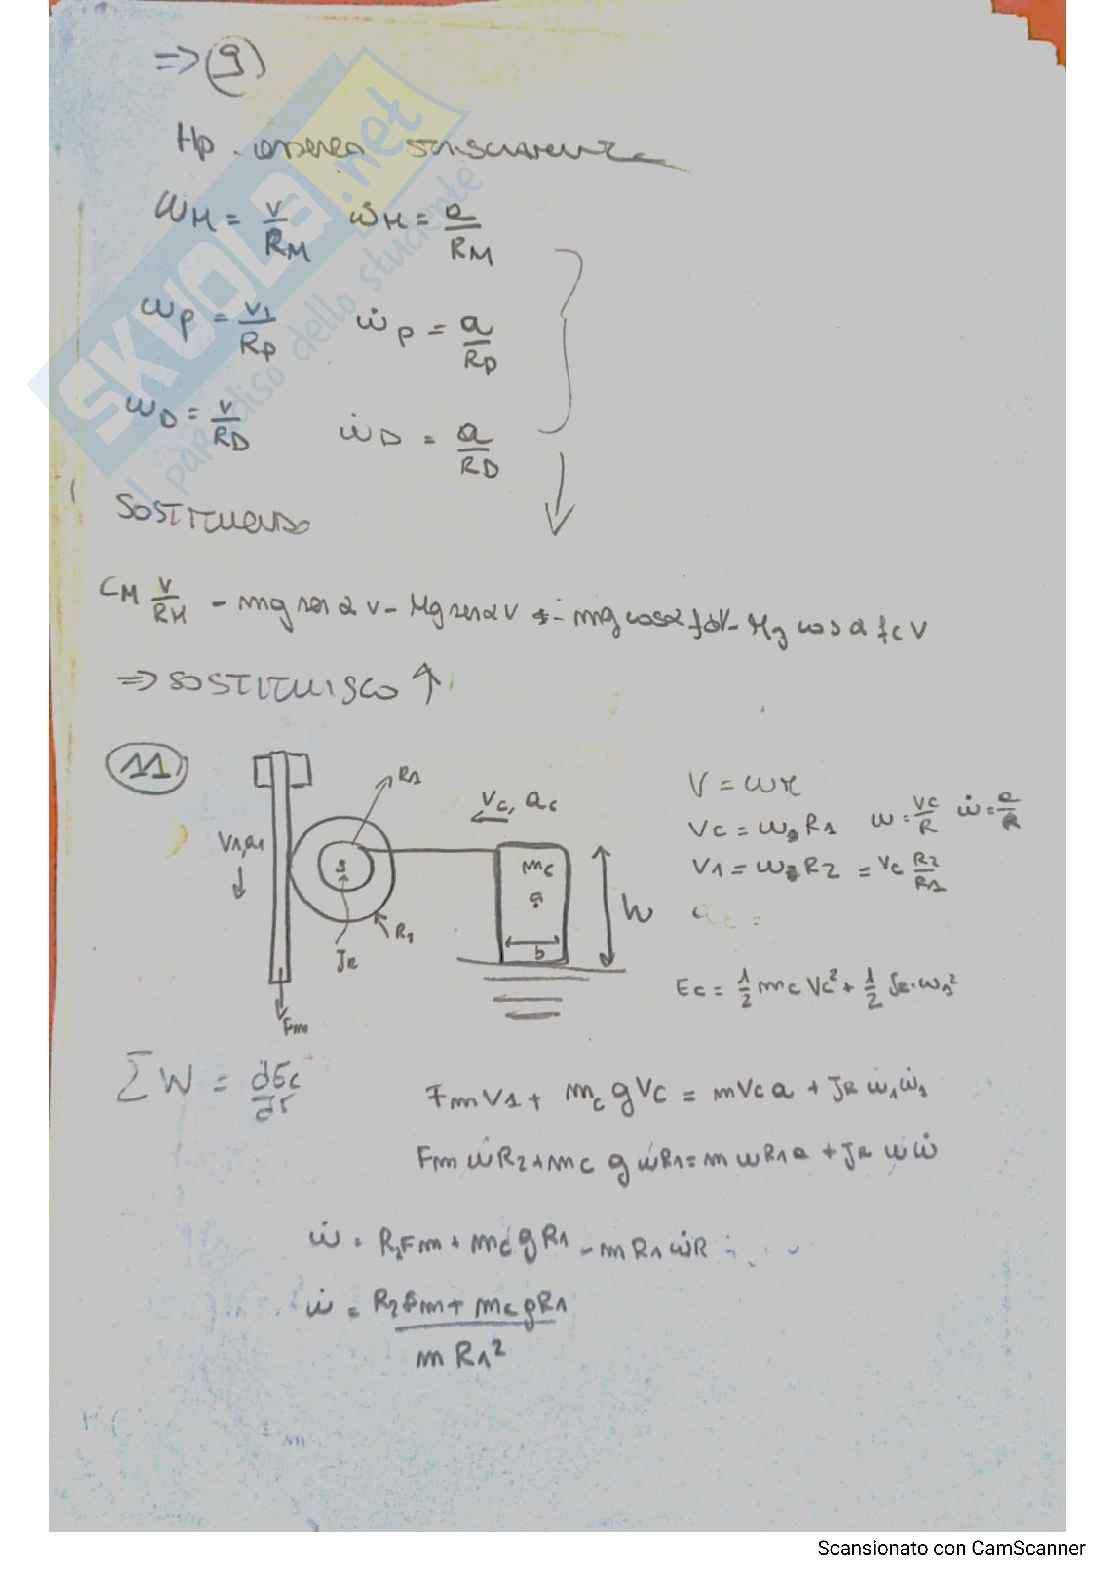 ⇒ (9)
Hp. assenza strisciamento
ωM = v/RM   ω̇M = a/RM
ωP = v1/RP   ω̇P = a/RP
ωD = v/RD   ω̇D = a/RD
SOSTITUENDO
CM v/RM - mg sen α v - Mg sen α v - mg cos α fd V - Mg cos α fc V
⇒ SOSTITUISCO ↑
11
R1
Vc, ac
V1, a1
mc
G
h
b
R1
JR
Fm
V = ωr
Vc = ω R1   ω = Vc/R   ω̇ = a/R
V1 = ω R2 = Vc R2/R1
Ec = 1/2 mc Vc² + 1/2 JR · ω1²
∑W = dEc/dt
Fm V1 + mc g Vc = m Vc a + JR ω1 ω̇1
Fm ω R2 + mc g ω R1 = m ω R1 a + JR ω ω̇
ω̇ = R2 Fm + mc g R1 - m R1 ω̇R
ω̇ = R2 Fm + mc g R1 / m R1²
SKUOLA.net
il paradiso dello studente
Scansionato con CamScanner